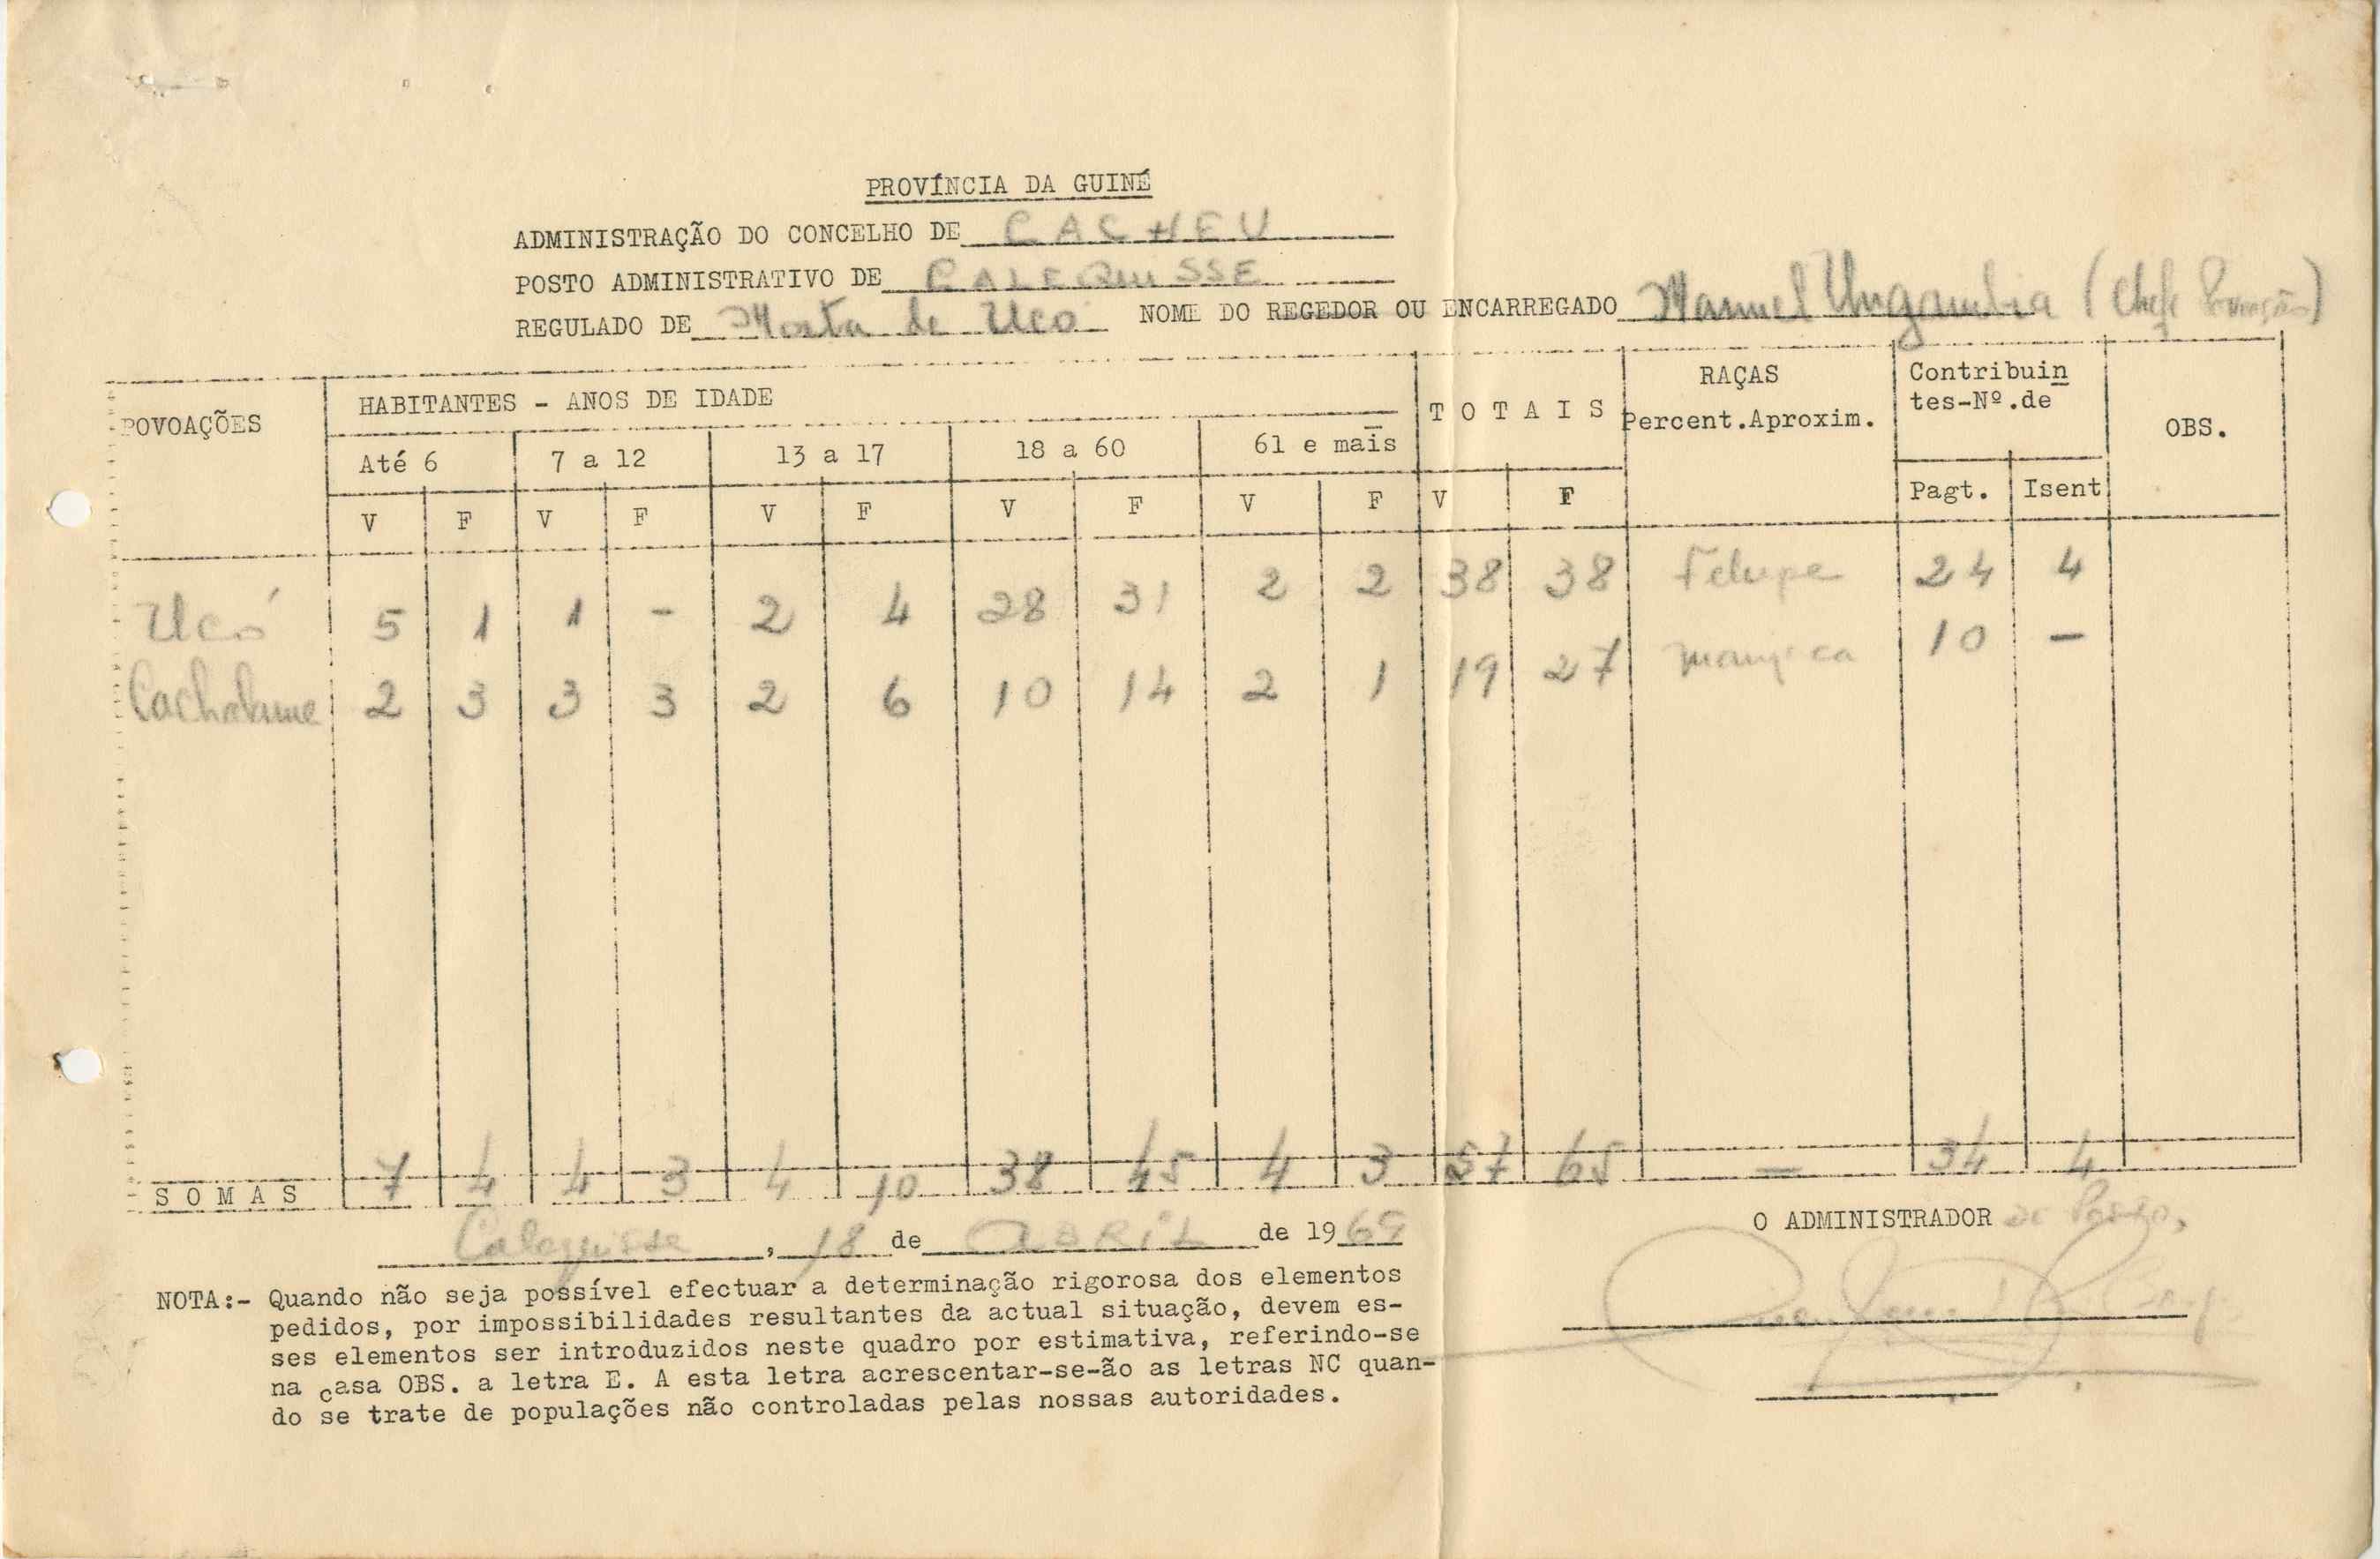 PROVÍNCIA DA GUINÉ
ADMINISTRAÇÃO DO CONCELHO DE CACHEU
POSTO ADMINISTRATIVO DE CALEQUISSE
REGULADO DE Mata de Ucó NOME DO REGEDOR OU ENCARREGADO Manuel Ungambia (Chefe Povoação)
POVOAÇÕES HABITANTES - ANOS DE IDADE T O T A I S RAÇAS Percent.Aproxim. Contribuin
tes-Nº.de OBS.
Até 6 7 a 12 13 a 17 18 a 60 61 e mais
V F V F V F V F V F V F Pagt. Isent
Ucó 5 1 1 - 2 4 28 31 2 2 38 38 Felupe 24 4
2 3 3 3 2 6 10 14 2 1 19 27 10 -
S O M A S 7 4 4 3 4 10 38 45 4 3 57 65 - 34 4
Calequisse, 18 de ABRIL de 1969
O ADMINISTRADOR DE Posto,
NOTA:- Quando não seja possível efectuar a determinação rigorosa dos elementos
pedidos, por impossibilidades resultantes da actual situação, devem es-
ses elementos ser introduzidos neste quadro por estimativa, referindo-se
na casa OBS. a letra E. A esta letra acrescentar-se-ão as letras NC quan-
do se trate de populações não controladas pelas nossas autoridades.